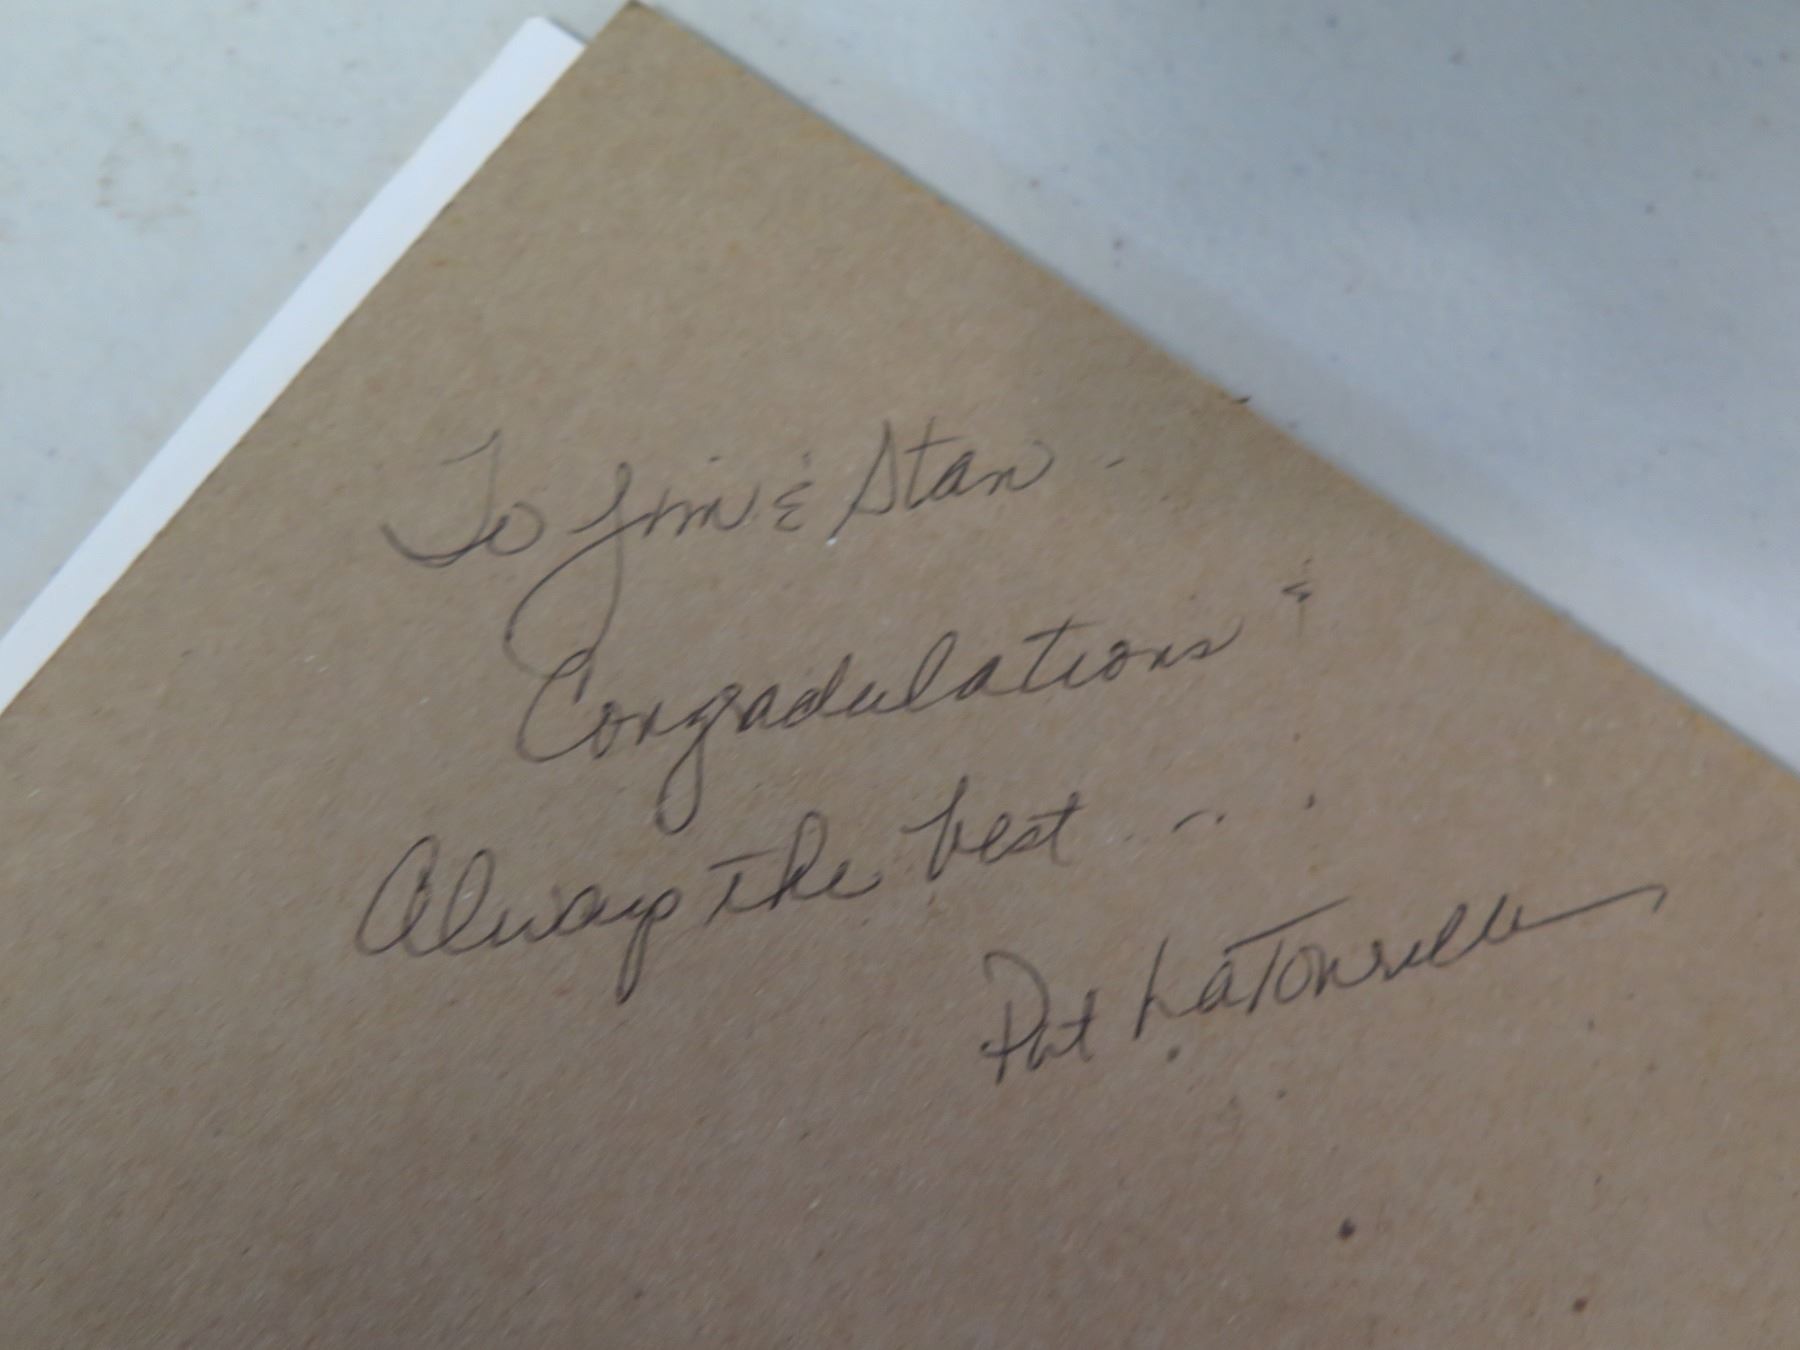 To Jim & Stan -
Congadulations &
Always the best ....
Pat LaTourelle